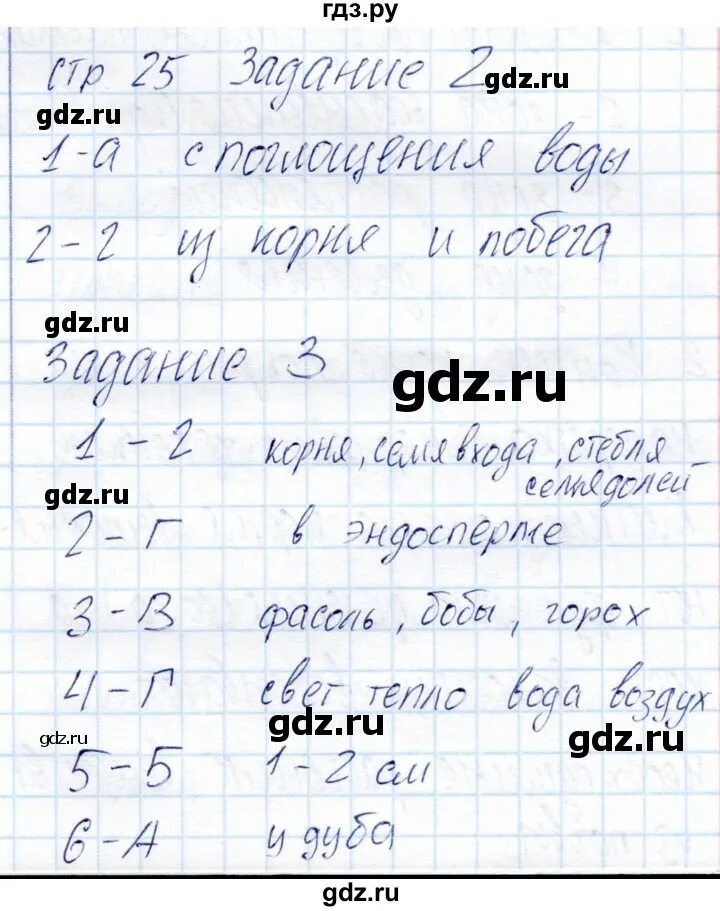 гдз.ру
стр 25 Задание 2
gdz.ru
gdz.ru
1-а с поглощения воды
2-г из корня и побега
gdz.ru
Задание 3
gdz.ru
1-г корня, семявхода, стебля
семядолей
gdz.ru
2-Г в эндосперме
3-В фасоль, бобы, горох
4-Г свет тепло вода воздух
gdz.ru
gdz.ru
gdz.ru
5-Б 1-2 см
6-А у дуба
gdz.ru